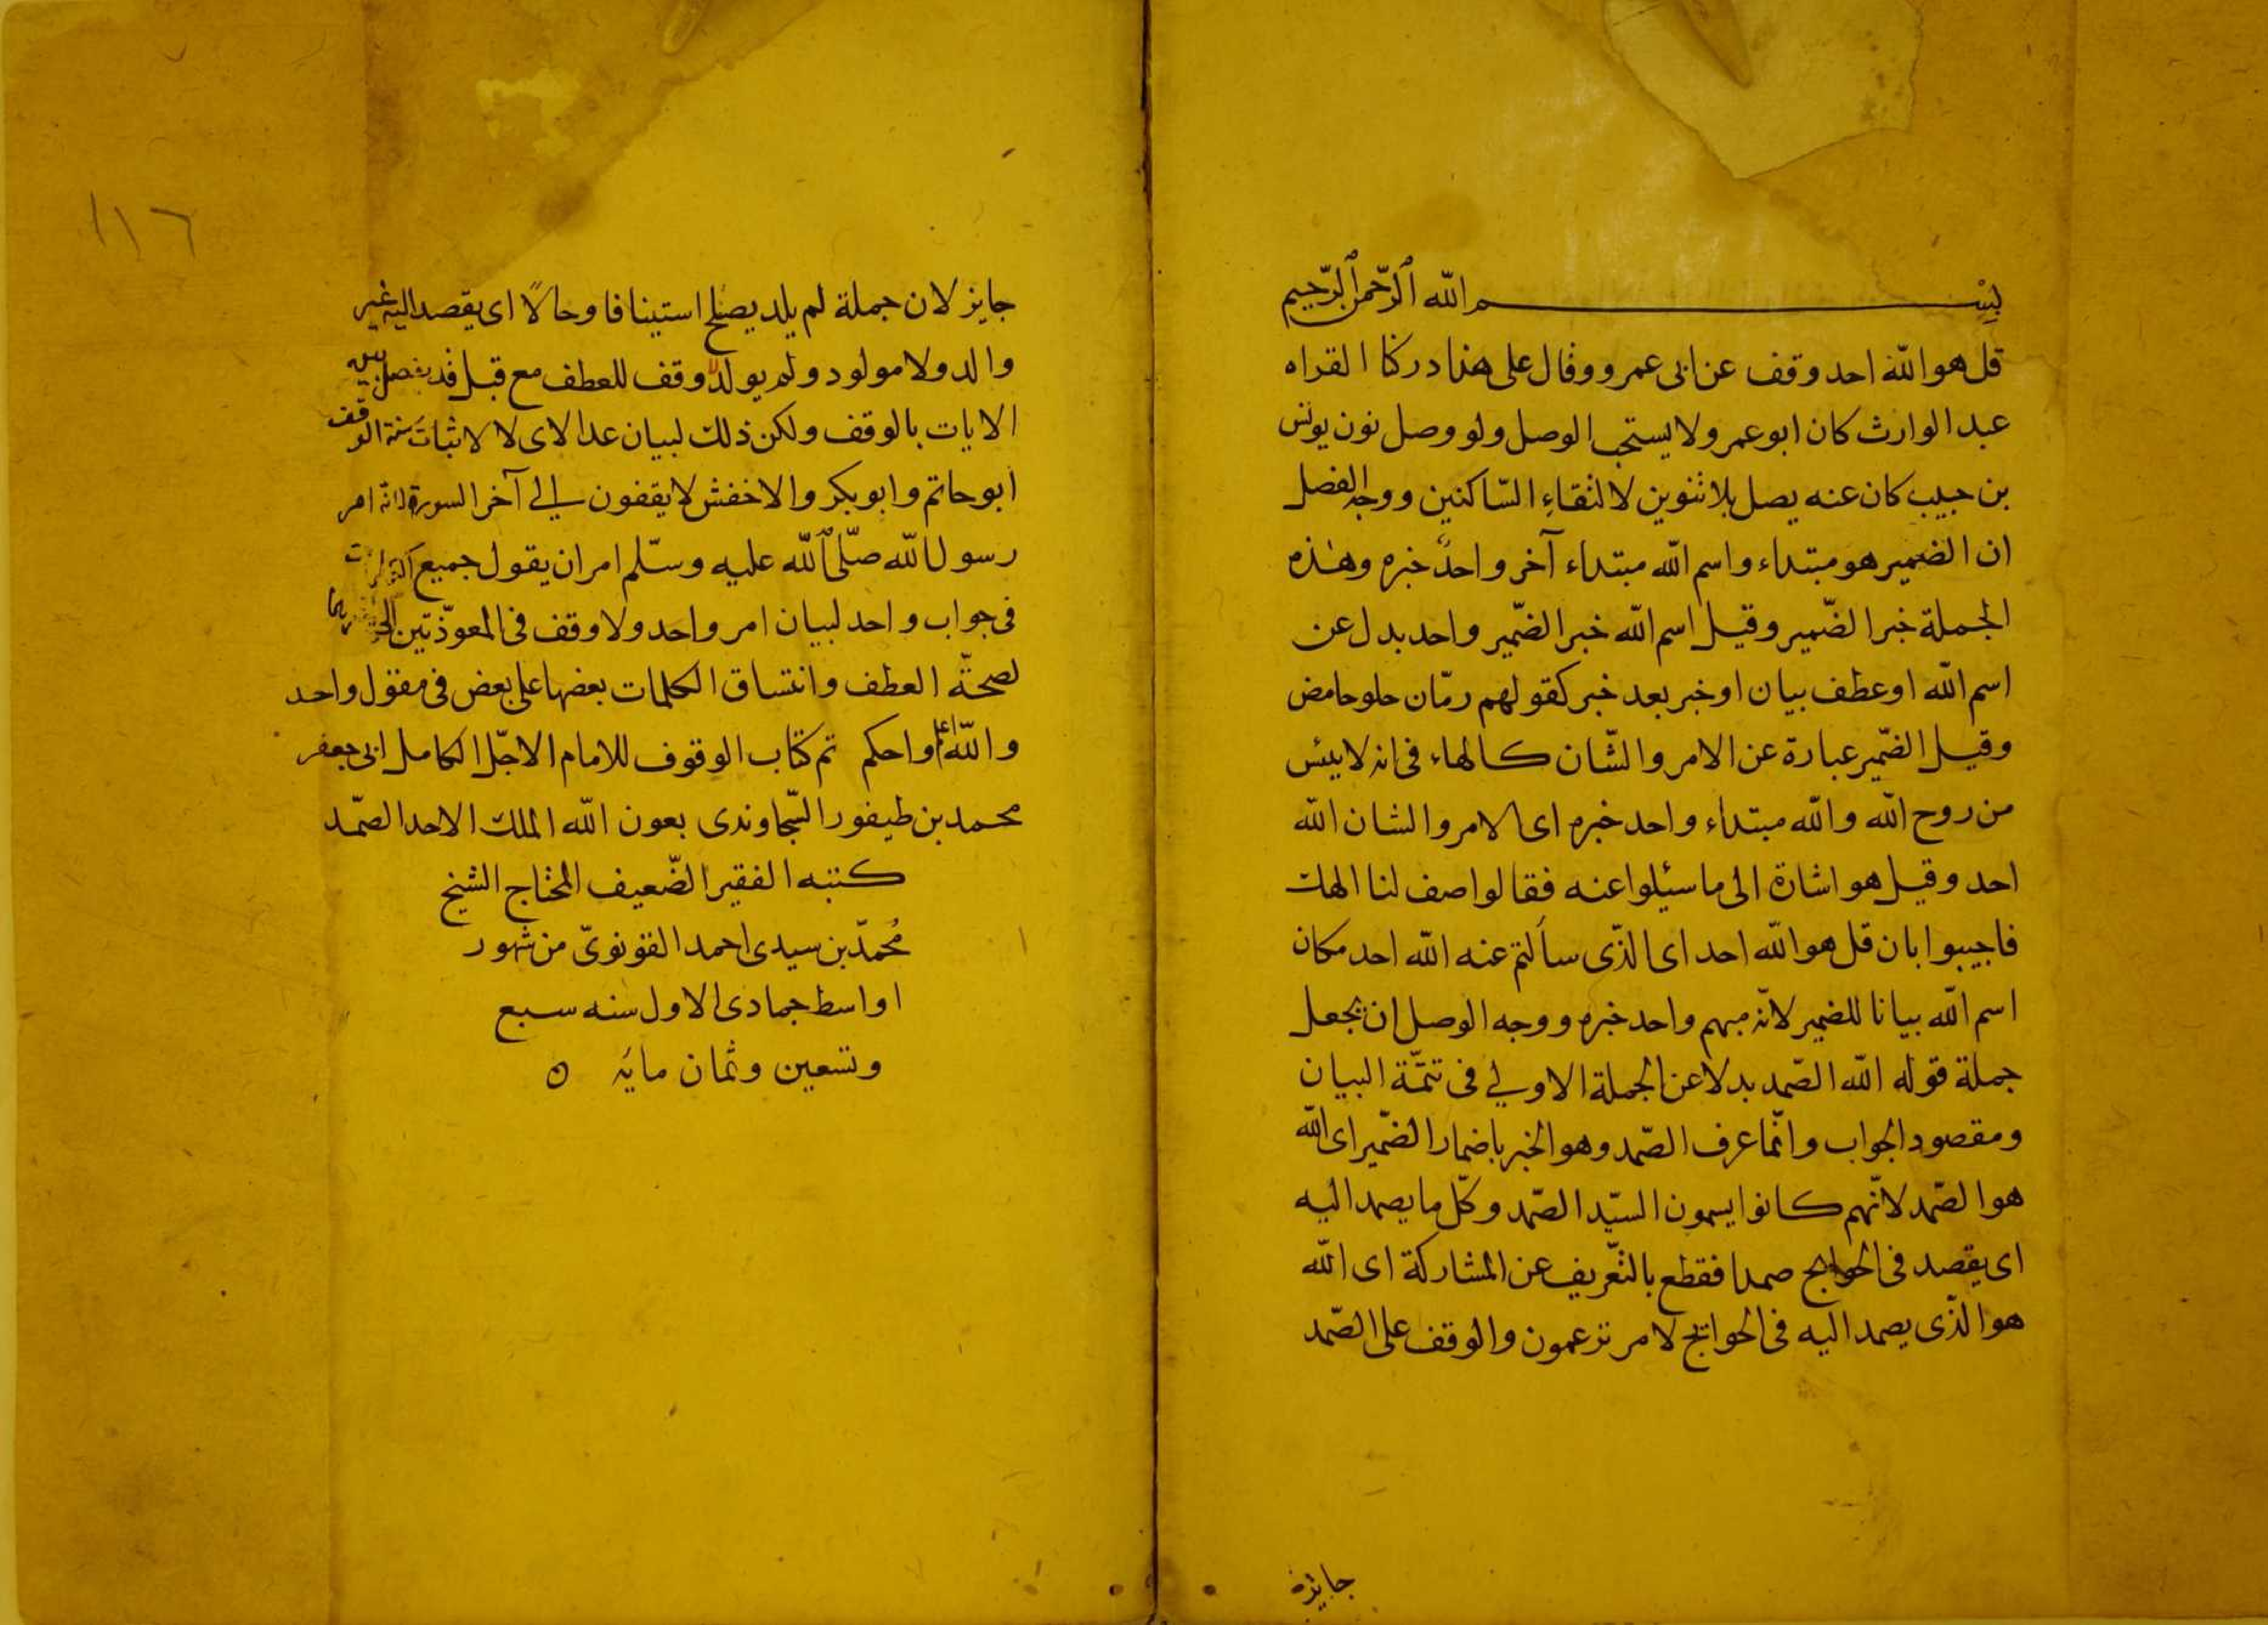 بِسْم الله الرّحمن الرّحيم
قل هو الله احد وقف عن ابى عمرو وقال على هذا دركنا القراه
عبد الوارث كان ابو عمرو لا يستحب الوصل ولو وصل نون يونس
بن حبيب كان عنه يصل بلا تنوين لالتقاءِ السّاكنين ووجه الفصل
ان الضمير هو مبتداء واسم الله مبتداء آخر واحدٌ خبره وهذه
الجملة خبر الضّمير وقيل اسم الله خبر الضّمير واحد بدل عن
اسم الله او عطف بيان او خبر بعد خبر كقولهم رمّان حلو حامض
وقيل الضّمير عبارة عن الامر والشّان كالهاء فى انه لا ييئس
من روح الله والله مبتداء واحد خبره اى الامر والشان الله
احد وقيل هو اشارة الى ما سئيلوا عنه فقالوا صف لنا الهك
فاجيبوا بان قل هو الله احد اى الذّى سألتم عنه الله احد مكان
اسم الله بيانا للضمير لانّه مبهم واحد خبره ووجه الوصل ان يجعل
جملة قوله الله الصّمد بدلا عن الجملة الاولى فى تتمّة البيان
ومقصود الجواب وانّما عرف الصّمد وهو الخبر باضمار الضّمير اى الله
هو الصّمد لانّهم كانوا يسمون السيّد الصّمد وكلّ ما يصمد اليه
اى يقصد فى الحوايج صمدا فقطع بالتّعريف عن المشاركة اى الله
هو الذّى يصمد اليه فى الحوايج لا مر تزعمون والوقف على الصّمد
جايزه
١١٦
جايز لان جملة لم يلد يصلح استينافا وحالًا اى يقصد اليه غير
والد ولا مولود ولم يولد لا وقف للعطف مع قبل قد يفصل بين
الايات بالوقف ولكن ذلك لبيان عد الاى لا لاثبات سنة الوقف
ابو حاتم وابو بكر والاخفش لا يقفون الى آخر السورة لانّه امر
رسول الله صلّى الله عليه وسلّم امر ان يقول جميع
فى جواب واحد لبيان امر واحد ولا وقف فى المعوّذتين
لصحّة العطف وانتساق الكلمات بعضها على بعض فى مقول واحد
والله اعلم واحكم تم كتاب الوقوف للامام الاجلّ الكامل ابى جعفر
محمد بن طيفور السّجاوندى بعون الله الملك الاحد الصّمد
كتبه الفقير الضّعيف المحتاج الشيخ
مُحمّد بن سيدى احمد القونوىّ من شهور
اواسط جمادى الاول سنه سبع
وتسعين وثمان مايَه ٥